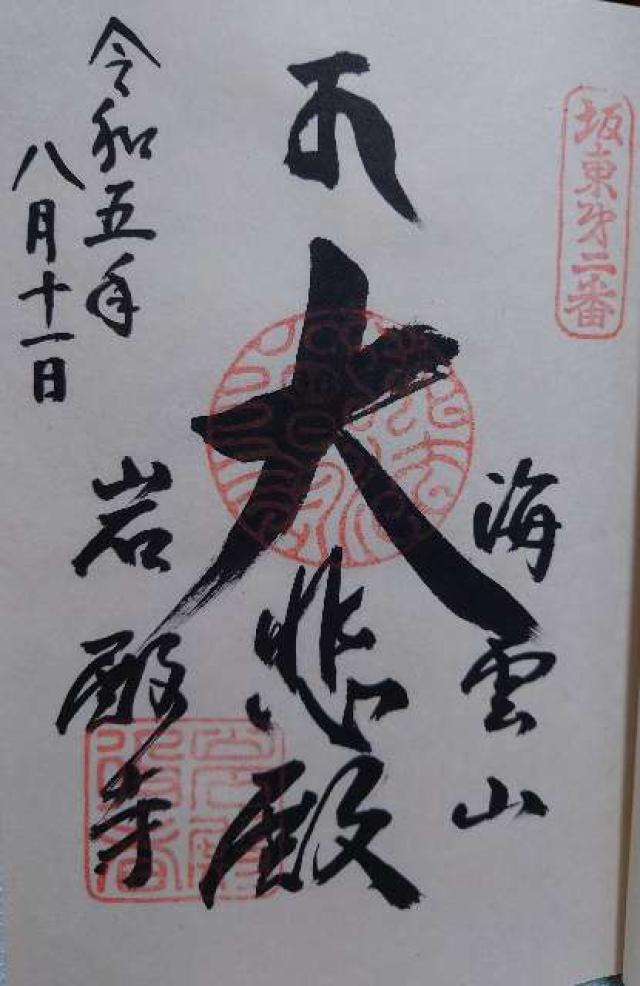 坂東第二番
海雲山
大悲殿
岩殿寺
令和五年
八月十一日